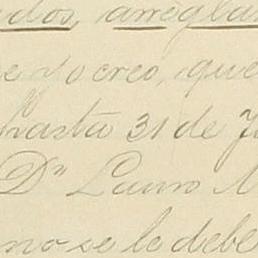 ados, arreglan
e yo creo, que
hasta 31 de J
Dn Lauro M
no se le debe